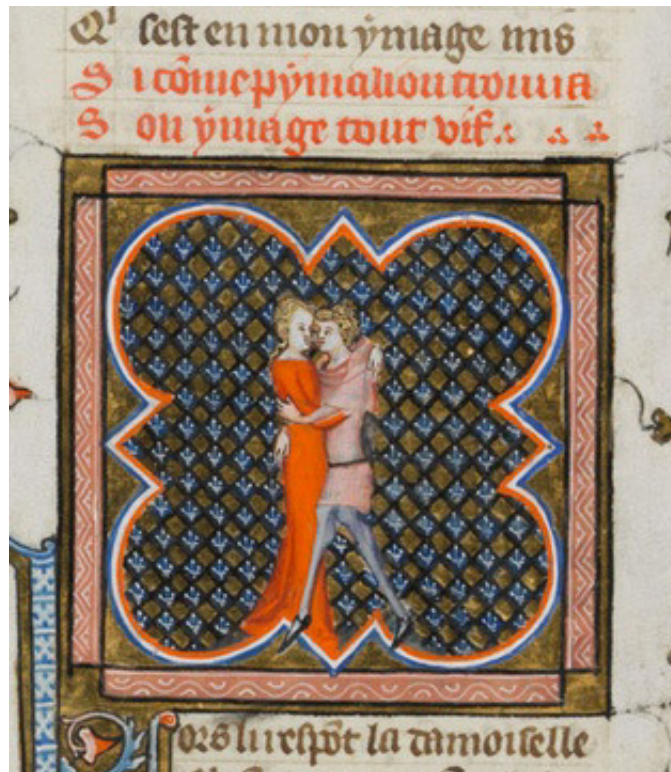 Qi sest en mon ymage mis
Si cõme pymalion trouua
Son ymage tout vif
Lors li respõt la damoiselle